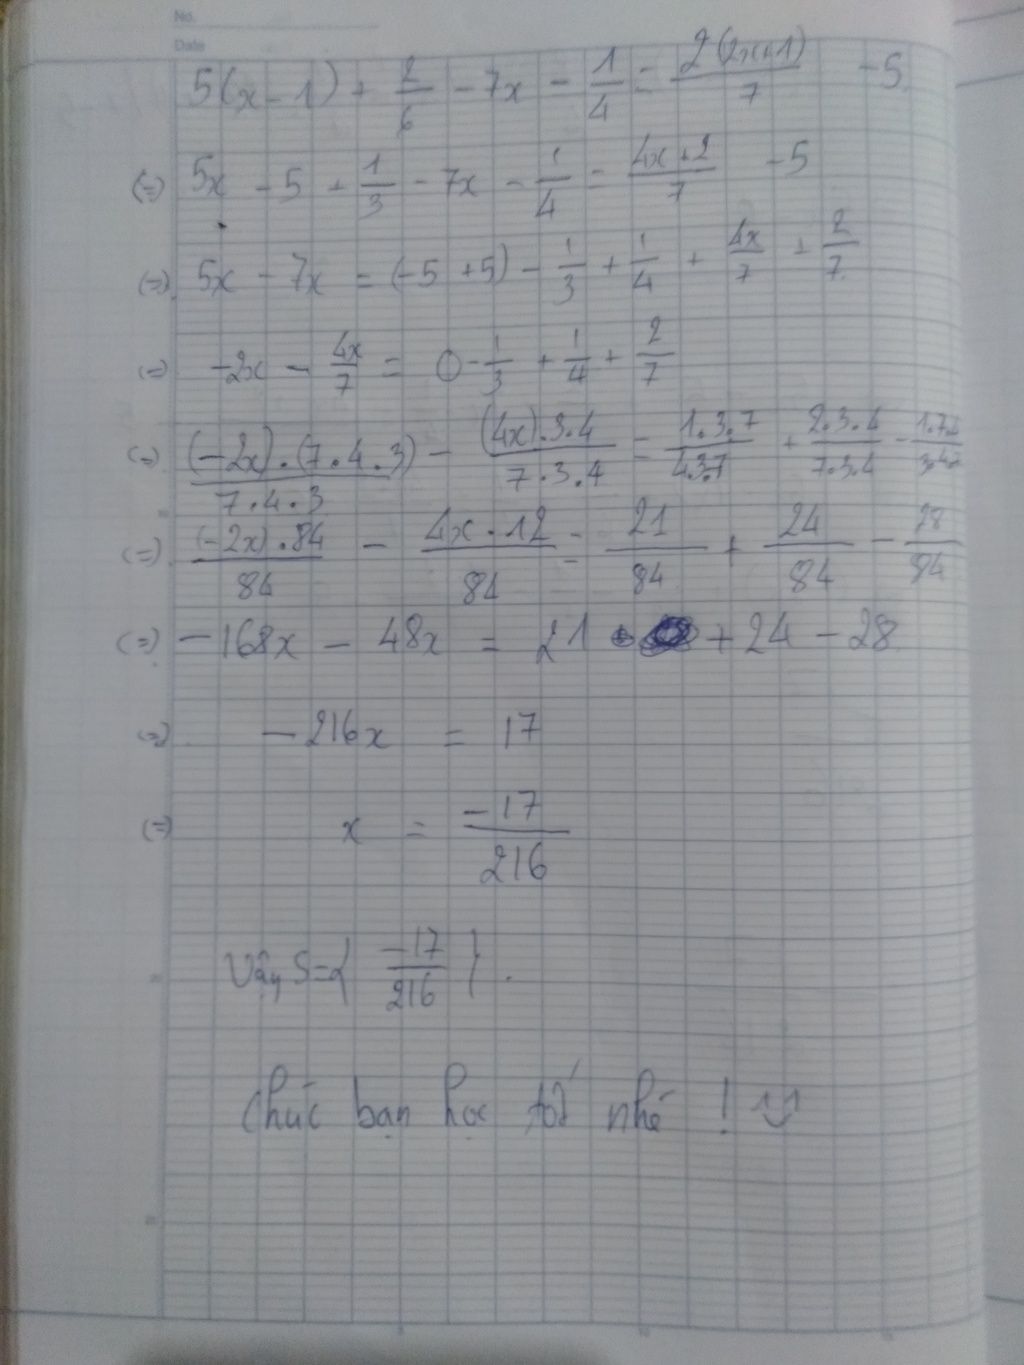 No.
Date
5(x-1) + 2/6 - 7x - 1/4 = 2(2x+1)/7 - 5
(=) 5x - 5 + 1/3 - 7x - 1/4 = 4x+2/7 - 5
(=) 5x - 7x = (-5 +5) - 1/3 + 1/4 + 4x/7 + 2/7
(=) -2x - 4x/7 = 0 - 1/3 + 1/4 + 2/7
(=) (-2x).(7.4.3)/7.4.3 - (4x).3.4/7.3.4 = 1.3.7/4.3.7 + 2.3.4/7.3.4 -
(=) (-2x).84/84 - 4x.12/84 = 21/84 + 24/84 - 28/84
(=) -168x - 48x = 21 + 24 - 28
(=) -216x = 17
(=) x = -17/216
Vậy S={ -17/216 }.
Chúc bạn học tốt nhé !